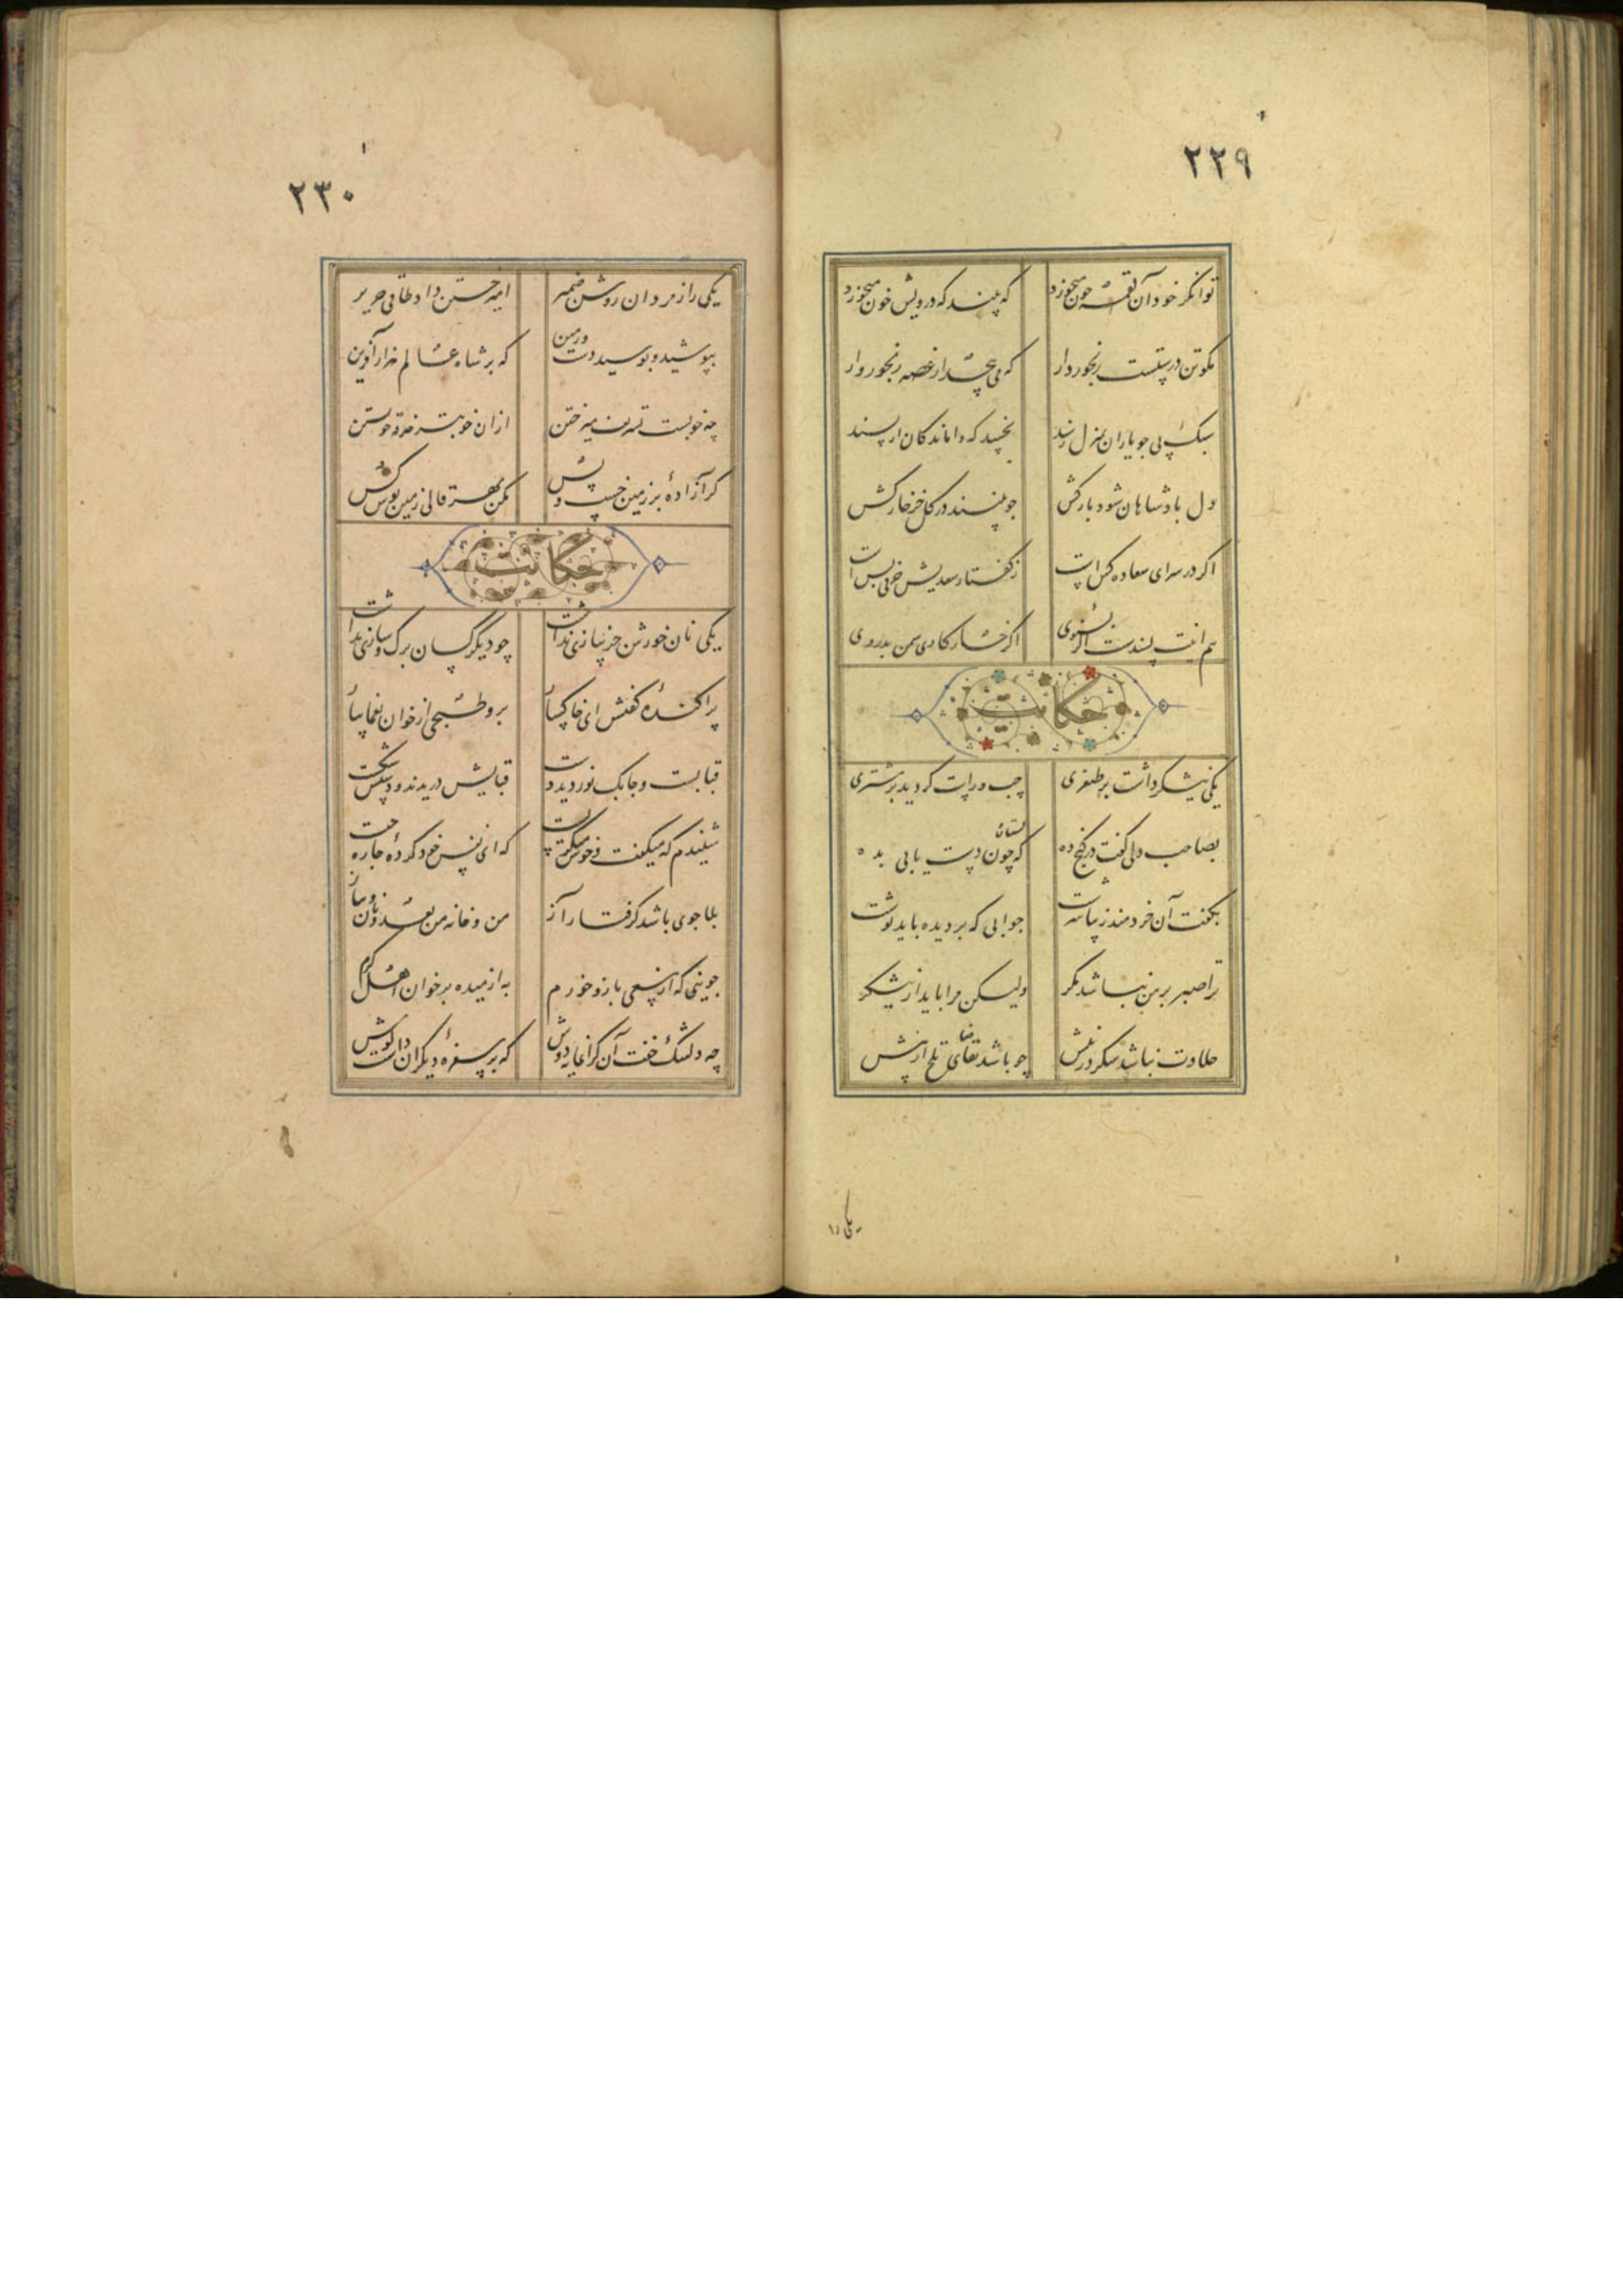 ٢٢٩
توانگر خود آن لقمه چون میخورد که بیند که درویش خون میخورد
مگو تن درستست رنجوردار که می پیچد از غصه رنجوروار
سبک پی چو یاران بمنزل رسند نخسبد که واماندگان از پسند
دل پادشاهان شود بارکش چو بینند در گل خر خارکش
اگر در سرای سعاده کس است ز گفتار سعدیش حرفی بس است
هم اینت پسندست اگر بشنوی اگر خار کاری سمن ندروی
حکایت
یکی نیشکر داشت بر طبقری چپ و راست گردید بر مشتری
بصاحب دلی گفت در کنج ده که بستان چون دست یابی بده
بگفت آن خردمند زیبا سرشت جوابی که بر دیده باید نوشت
ترا صبر بر من نباشد مگر ولیکن مرا باید از نیشکر
حلاوت نباشد شکر در نیش چو باشد تقاضای تلخ از پیش
یکی را
٢٣٠
یکی را ز مردان روشن ضمیر امیر ختن داد طاقی حریر
بپوشید و بوسید دست و زمین که بر شاه عالم هزار آفرین
چه خوبست تشریف میر ختن از آن خوبتر خرقه خویشتن
گر آزادهٔ بر زمین خسب و بس مکن بهر قالی زمین بوس کس
حکایت
یکی نان خورش جز پیازی نداشت چو دیگر کسان برگ و سازی نداشت
پراکندهٔ گفتش ای خاکسار برو طبخی از خوان یغما بیار
قبا بست و چابک نوردید دست قبایش دریدند و دستش شکست
شنیدم که میگفت و خوش میگریست که ای نفس خود کرده را چاره چیست
بلا جوی باشد گرفتار آز من و خانه من بعد و نان و پیاز
جوینی که از سعی بازو خورم به از میده بر خوان اهل کرم
چه دلتنگ خفت آن فرومایه دوش که بر سفرهٔ دیگران داشت گوش